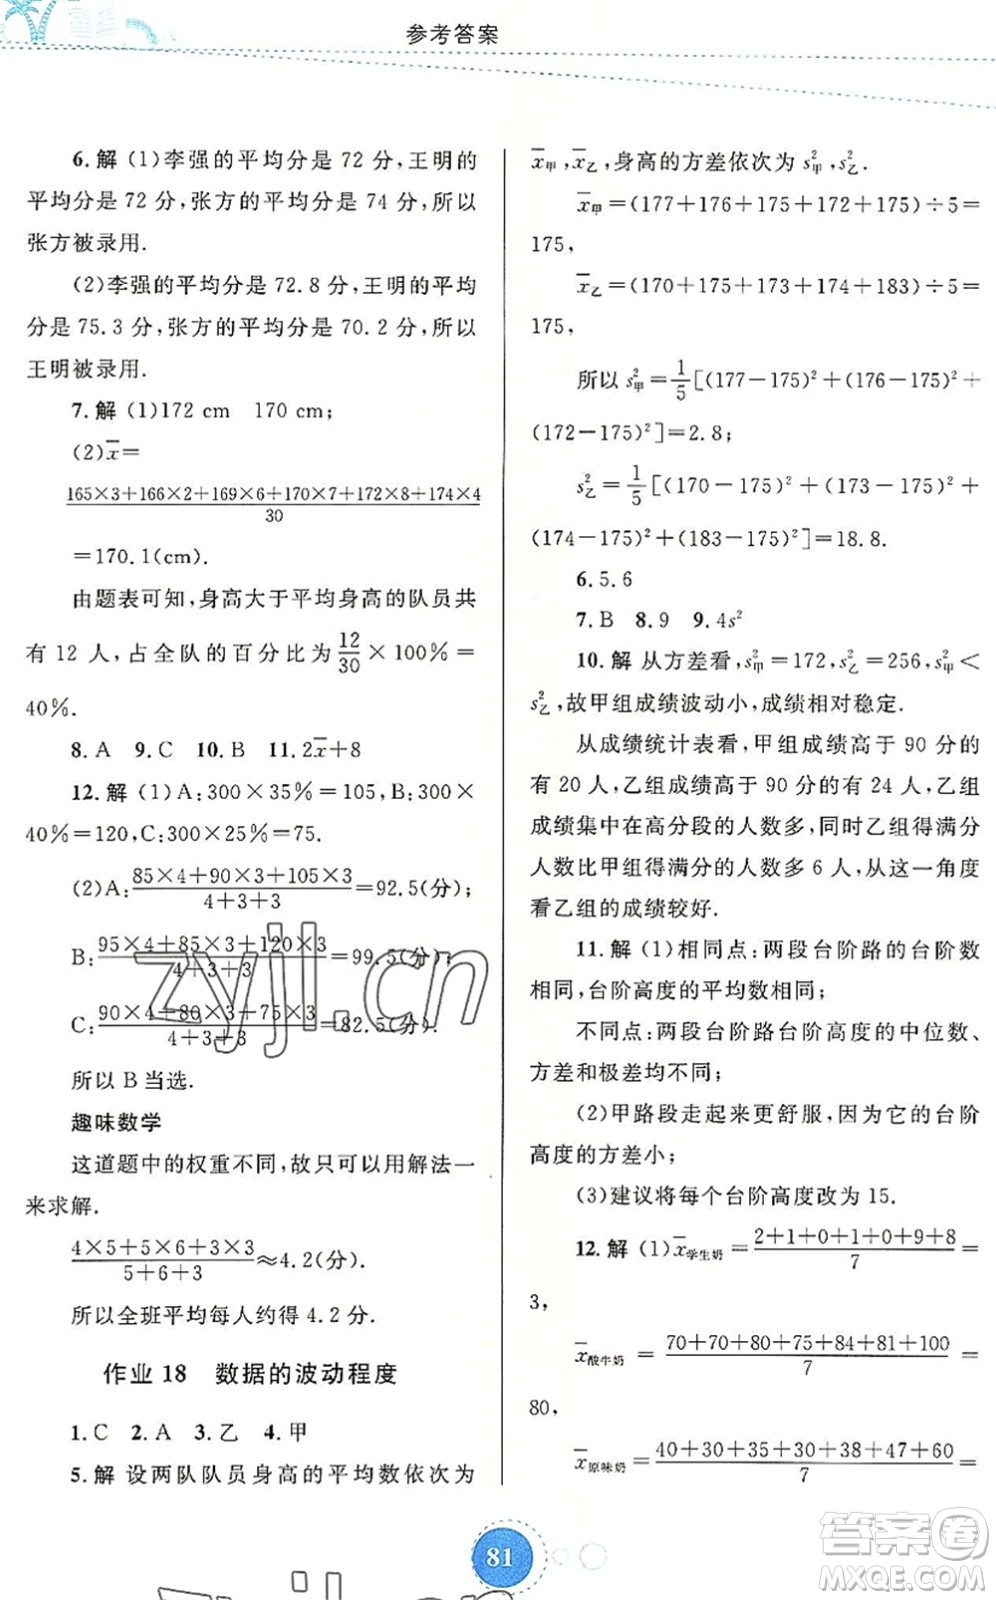 参考答案
6.解 (1)李强的平均分是 72 分,王明的
平均分是 72 分,张方的平均分是 74 分,所以
张方被录用.
(2)李强的平均分是 72.8 分,王明的平均
分是 75.3 分,张方的平均分是 70.2 分,所以
王明被录用.
7.解 (1)172 cm 170 cm;
(2)x̄=
(165×3+166×2+169×6+170×7+172×8+174×4)/30
=170.1(cm).
由题表可知,身高大于平均身高的队员共
有 12 人,占全队的百分比为 12/30 ×100%=
40%.
8.A 9.C 10.B 11.2x̄+8
12.解 (1)A:300×35%=105,B:300×
40%=120,C:300×25%=75.
(2)A:(85×4+90×3+105×3)/(4+3+3)=92.5(分);
B:(95×4+85×3+120×3)/(4+3+3)=99.5(分);
C:(90×4+80×3+75×3)/(4+3+3)=82.5(分).
所以 B 当选.
趣味数学
这道题中的权重不同,故只可以用解法一
来求解.
(4×5+5×6+3×3)/(5+6+3)≈4.2(分).
所以全班平均每人约得 4.2 分.
作业 18 数据的波动程度
1.C 2.A 3.乙 4.甲
5.解 设两队队员身高的平均数依次为
x̄甲,x̄乙,身高的方差依次为 s²甲,s²乙.
x̄甲=(177+176+175+172+175)÷5=
175,
x̄乙=(170+175+173+174+183)÷5=
175,
所以 s²甲=1/5[(177-175)²+(176-175)²+
(172-175)²]=2.8;
s²乙=1/5[(170-175)²+(173-175)²+
(174-175)²+(183-175)²]=18.8.
6.5.6
7.B 8.9 9.4s²
10.解 从方差看,s²甲=172,s²乙=256,s²甲<
s²乙,故甲组成绩波动小,成绩相对稳定.
从成绩统计表看,甲组成绩高于 90 分的
有 20 人,乙组成绩高于 90 分的有 24 人,乙组
成绩集中在高分段的人数多,同时乙组得满分
人数比甲组得满分的人数多 6 人,从这一角度
看乙组的成绩较好.
11.解 (1)相同点:两段台阶路的台阶数
相同,台阶高度的平均数相同;
不同点:两段台阶路台阶高度的中位数、
方差和极差均不同;
(2)甲路段走起来更舒服,因为它的台阶
高度的方差小;
(3)建议将每个台阶高度改为 15.
12.解 (1)x̄学生奶=(2+1+0+1+0+9+8)/7=
3,
x̄酸牛奶=(70+70+80+75+84+81+100)/7=
80,
x̄原味奶=(40+30+35+30+38+47+60)/7=
81
zyjl.cn
答案圈
MXQE.COM